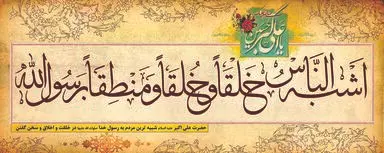 یا علی اکبر
اشبه النّاس خَلقاً و خُلقاً و مَنطقاً برسول الله
حضرت علی اکبر علیه السلام شبیه ترین مردم به رسول خدا صلوات الله علیه در خلقت و اخلاق و سخن گفتن